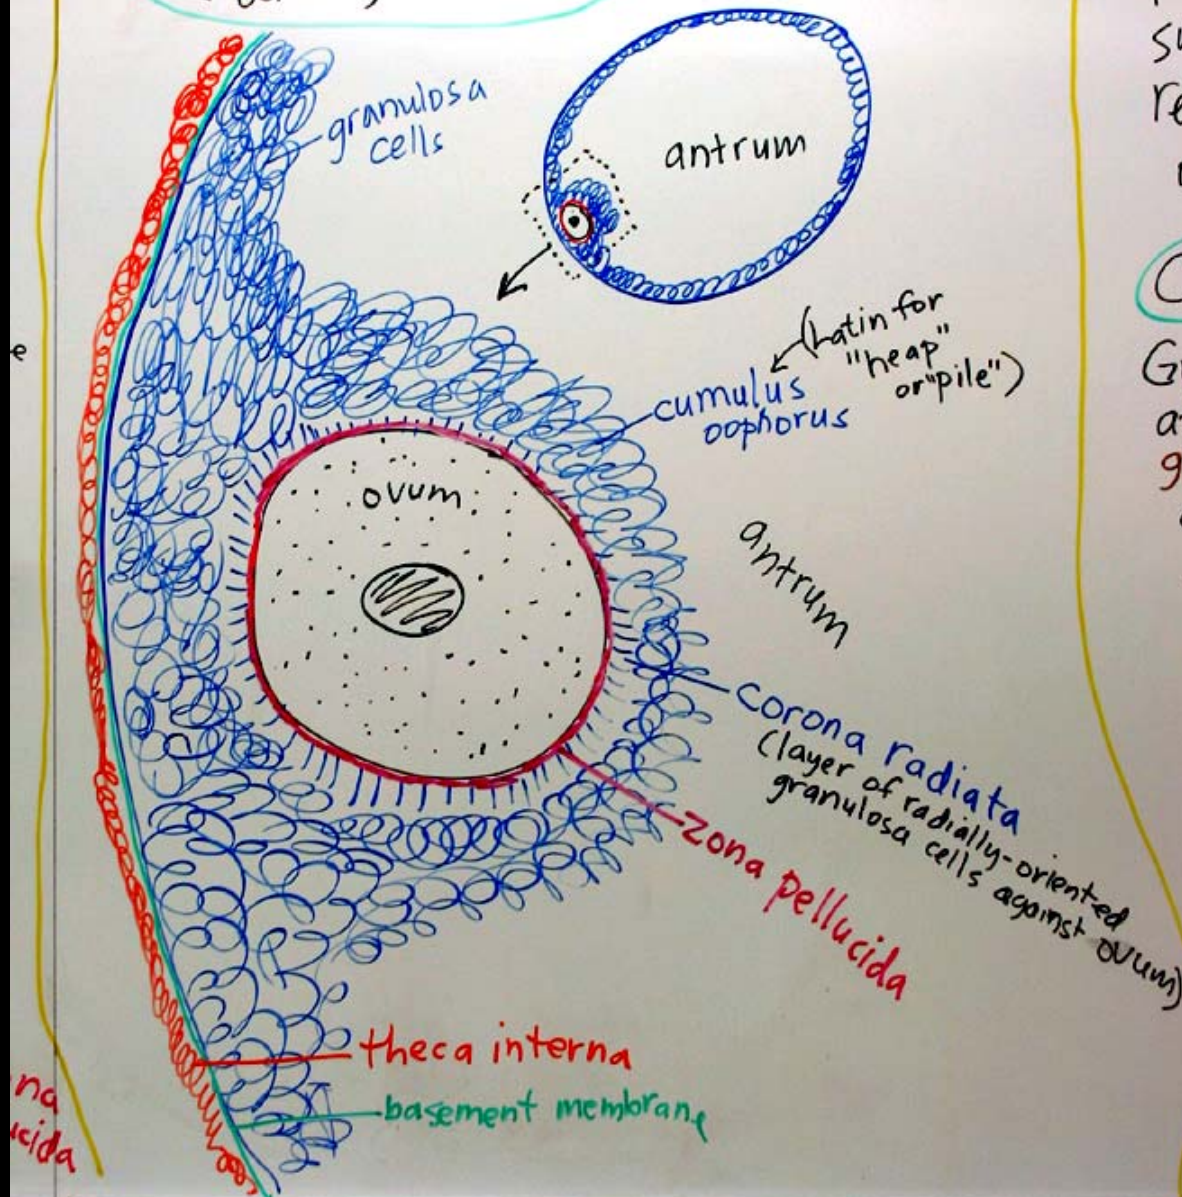 granulosa
cells
antrum
(Latin for
"heap"
or "pile")
cumulus
oophorus
ovum
antrum
corona radiata
(layer of radially-oriented
granulosa cells against ovum)
zona pellucida
theca interna
basement membrane
e
na
ucida
su
re
G
a
g